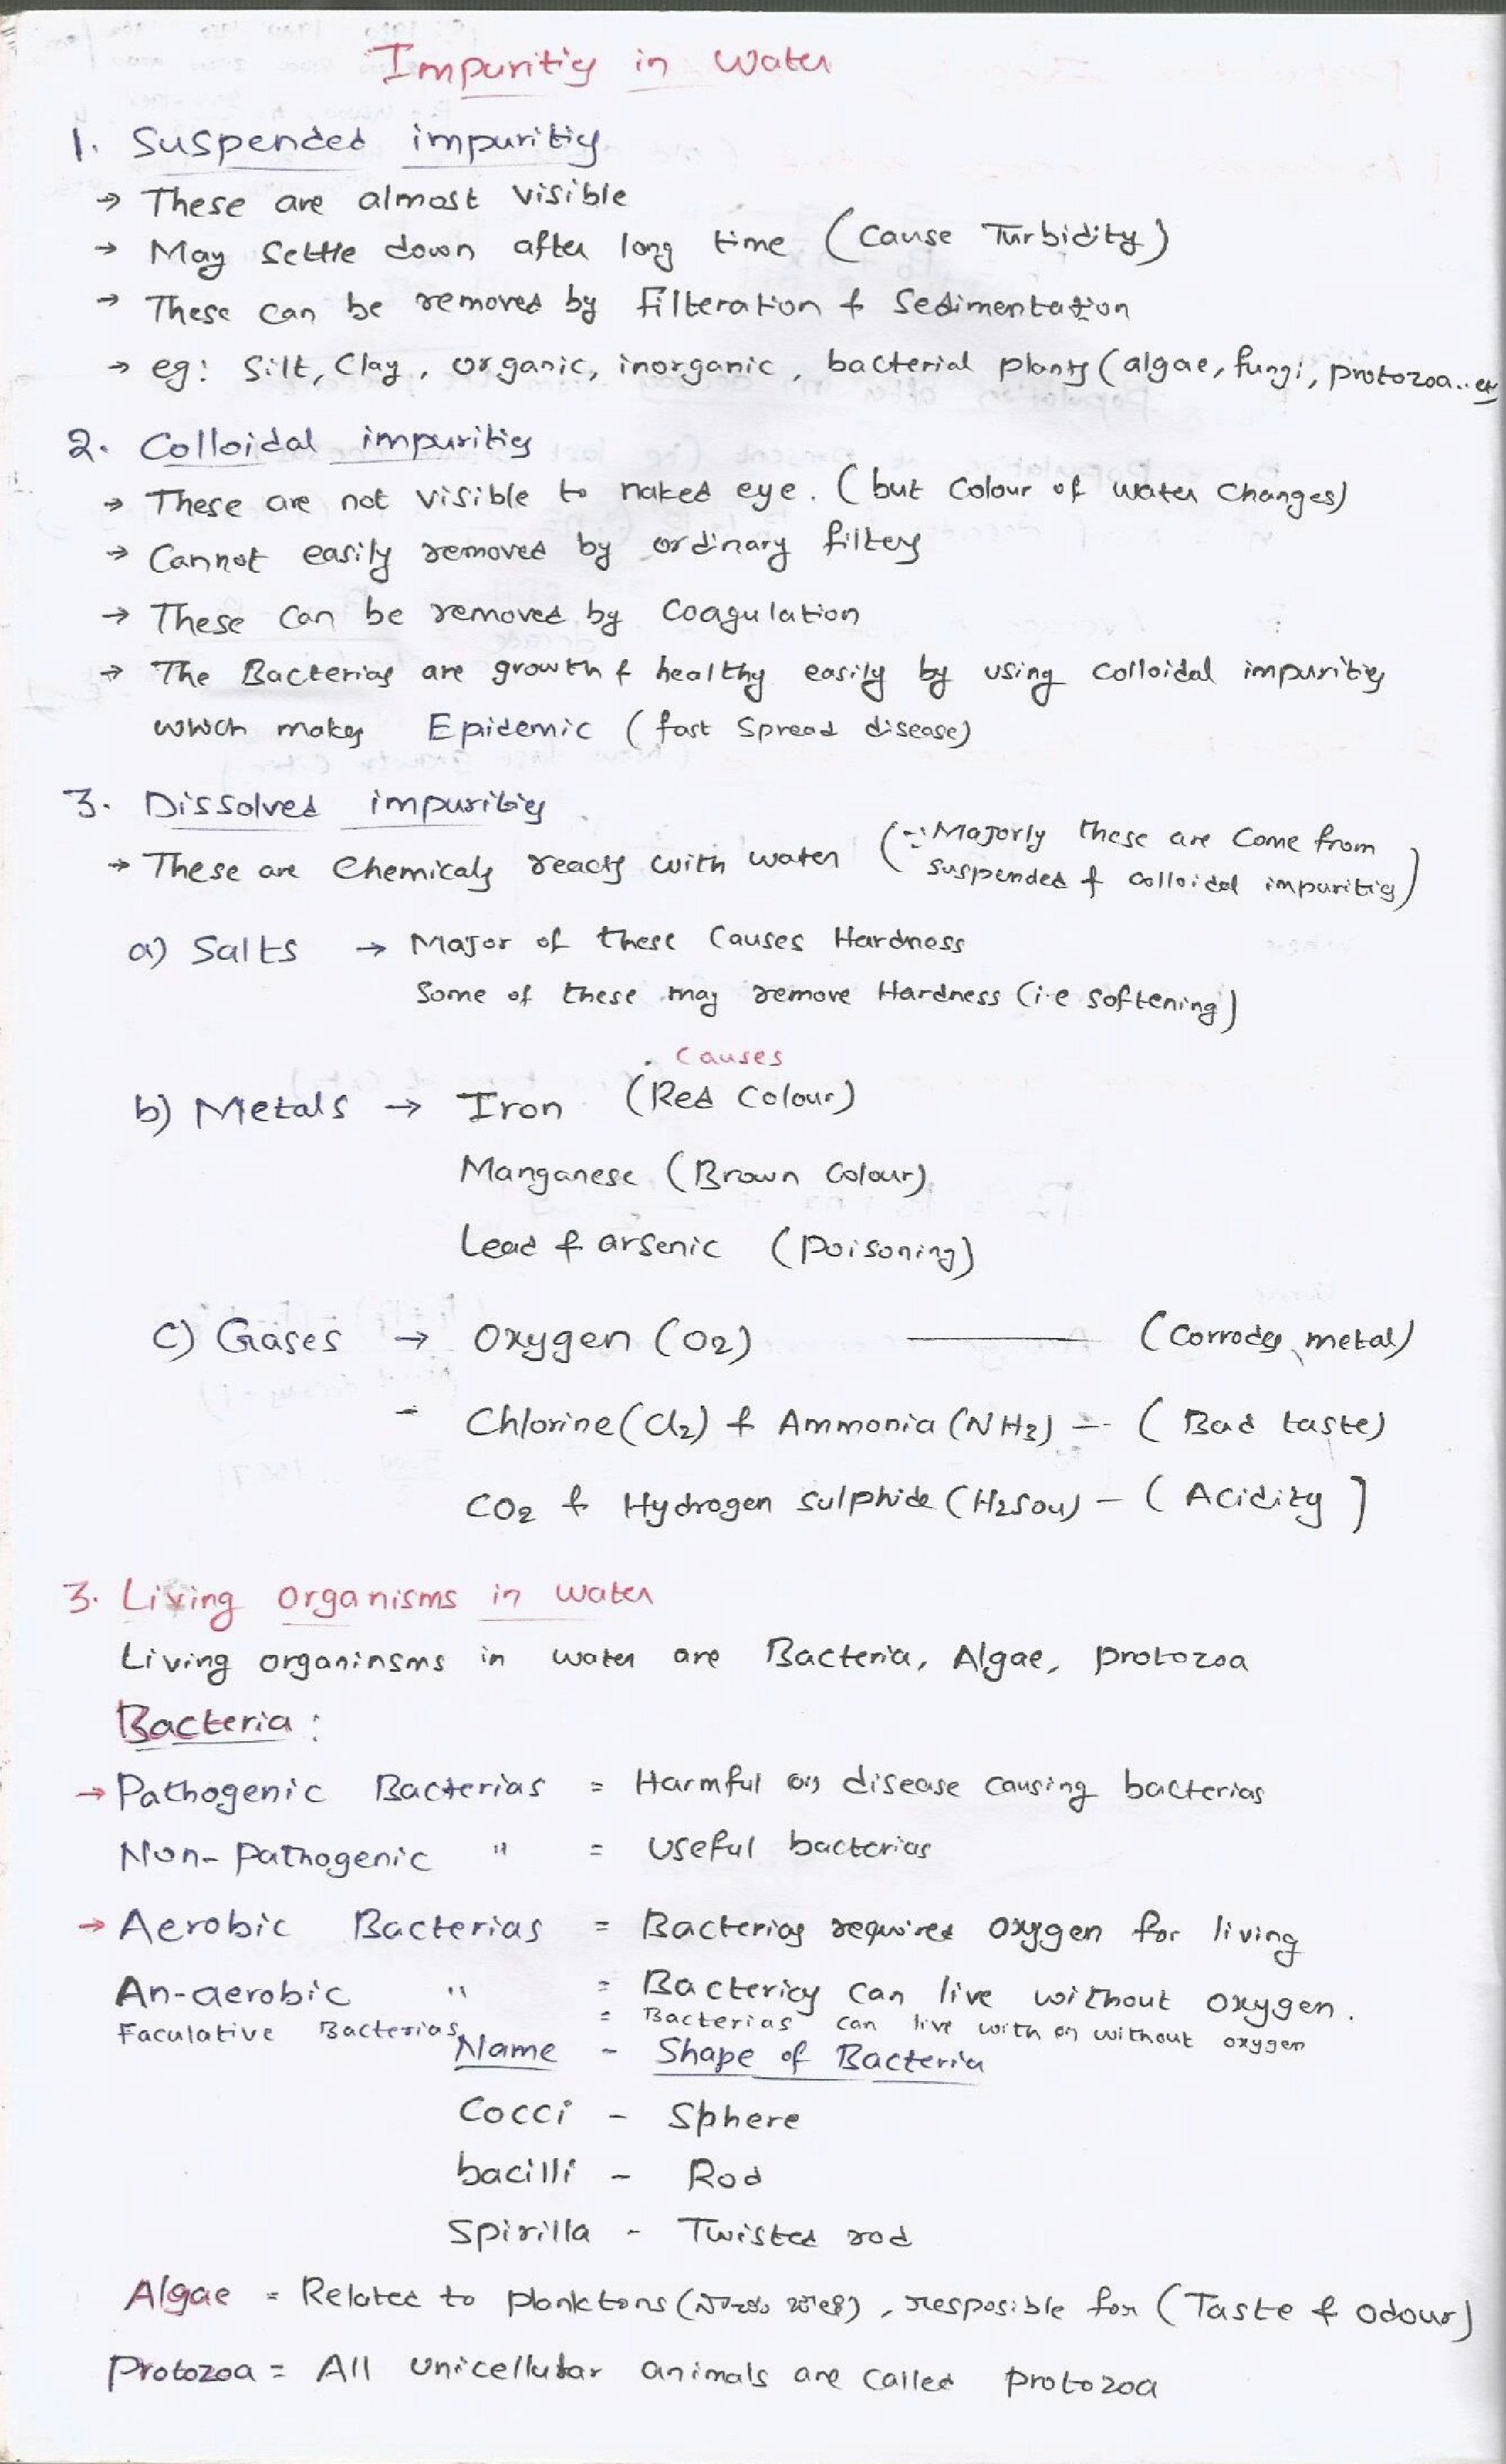 Impurities in water
1. Suspended impurities
→ These are almost visible
→ May settle down after long time (cause Turbidity)
→ These can be removed by Filteration & Sedimentation
→ eg: Silt, Clay, organic, inorganic, bacterial plants (algae, fungi, protozoa.. etc
2. Colloidal impurities
→ These are not visible to naked eye. (but colour of water changes)
→ Cannot easily removed by ordinary filters
→ These can be removed by coagulation
→ The Bacterias are growth & healthy easily by using colloidal impurities
which makes Epidemic (fast spread disease)
3. Dissolved impurities
→ These are chemicals reacts with water (∵ Majorly these are come from
suspended & colloidal impurities)
a) Salts → Major of these causes Hardness
Some of these may remove Hardness (i.e softening)
causes
b) Metals → Iron (Red colour)
Manganese (Brown colour)
Lead & arsenic (poisoning)
c) Gases → Oxygen (O2) — (corrodes metal)
- Chlorine (Cl2) & Ammonia (NH3) — (Bad taste)
CO2 & Hydrogen sulphide (H2SO4) — (Acidity]
3. Living organisms in water
Living organinsms in water are Bacteria, Algae, protozoa
Bacteria:
→ Pathogenic Bacterias = Harmful (or) disease causing bacterias
Non-pathogenic " = useful bacterias
→ Aerobic Bacterias = Bacterias required oxygen for living
An-aerobic " = Bacterias can live without oxygen.
Faculative Bacterias = Bacterias can live with or without oxygen
Name - Shape of Bacteria
Cocci - Sphere
bacilli - Rod
Spirilla - Twisted rod
Algae = Related to planktons, resposible for (Taste & odour)
Protozoa = All unicellular animals are called protozoa